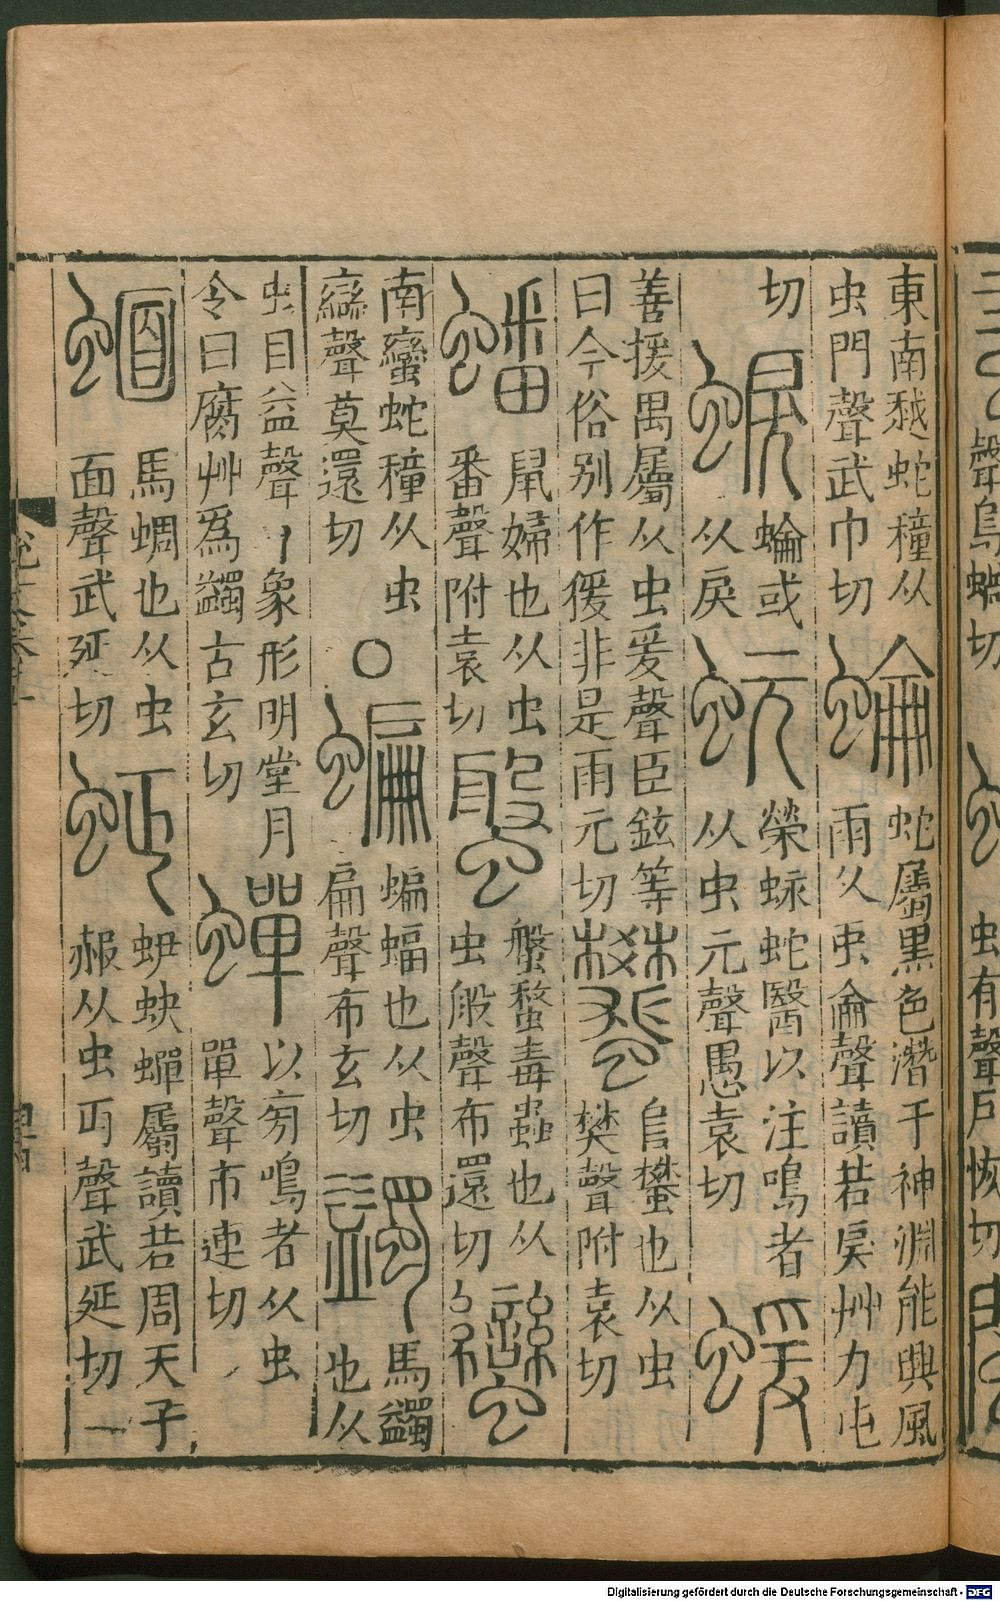 東南越蛇穜从
虫門聲武巾切
蜦
蛇屬黑色潛于神淵能興風
雨从虫侖聲讀若戾艸力屯
切
蜧
蜦或
从戾
蚖
榮蚖蛇醫以注鳴者
从虫元聲愚袁切
蝯
善援禺屬从虫爰聲臣鉉等
曰今俗别作猨非是雨元切
蠜
𨸏蠜也从虫
樊聲附袁切
蟠
鼠婦也从虫
番聲附袁切
螌
螌蝥毒蟲也从
虫般聲布還切
蠻
南蠻蛇穜从虫
䜌聲莫還切
○
蝙
蝙蝠也从虫
扁聲布玄切
蠲
馬蠲也从
虫目益聲丨象形明堂月
令曰腐艸爲蠲古玄切
蟬
以旁鳴者从虫
單聲市連切
蝒
馬蜩也从虫
面聲武延切
蚵蚗蟬屬讀若周天子
赧从虫丏聲武延切
一
Digitalisierung gefördert durch die Deutsche Forschungsgemeinschaft - DFG